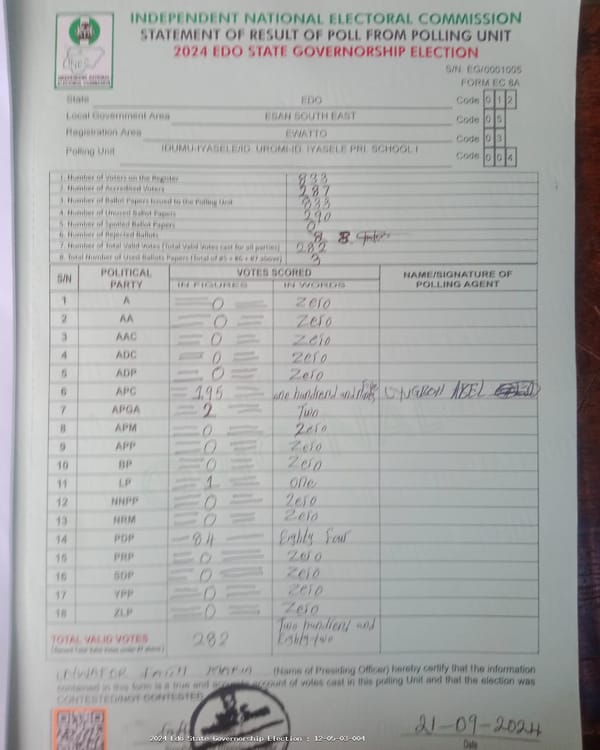 INDEPENDENT NATIONAL ELECTORAL COMMISSION
STATEMENT OF RESULT OF POLL FROM POLLING UNIT
2024 EDO STATE GOVERNORSHIP ELECTION
S/N: EG/0001005
FORM EC 8A
State EDO Code 0 1 2
Local Government Area ESAN SOUTH EAST Code 0 5
Registration Area EWATTO Code 0 3
Polling Unit IDUMU-IYASELE/ID. UROMI-ID. IYASELE PRI. SCHOOL I Code 0 0 4
1. Number of Voters on the Register 833
2. Number of Accredited Voters 287
3. Number of Ballot Papers Issued to the Polling Unit 833
4. Number of Unused Ballot Papers
5. Number of Spoiled Ballot Papers 0
6. Number of Rejected Ballots 8
7. Number of Total Valid Votes (Total Valid Votes cast for all parties) 282
8. Total Number of Used Ballots Papers (Total of #5 + #6 + #7 above) 3
S/N POLITICAL PARTY VOTES SCORED NAME/SIGNATURE OF POLLING AGENT
IN FIGURES IN WORDS
1 A 0 Zero
2 AA 0 Zero
3 AAC 0 Zero
4 ADC 0 Zero
5 ADP 0 Zero
6 APC 195 one hundred and
7 APGA 2 Two
8 APM 0 Zero
9 APP 0 Zero
10 BP 0 Zero
11 LP 1 One
12 NNPP 0 Zero
13 NRM 0 Zero
14 PDP 84 Eighty four
15 PRP 0 Zero
16 SDP 0 Zero
17 YPP 0 Zero
18 ZLP 0 Zero
TOTAL VALID VOTES 282 Two hundred and Eighty-two
(Name of Presiding Officer) hereby certify that the information
contained in this form is a true and accurate account of votes cast in this polling Unit and that the election was
CONTESTED/NOT CONTESTED
21-09-2024
Date
2024 Edo State Governorship Election : 12-05-03-004